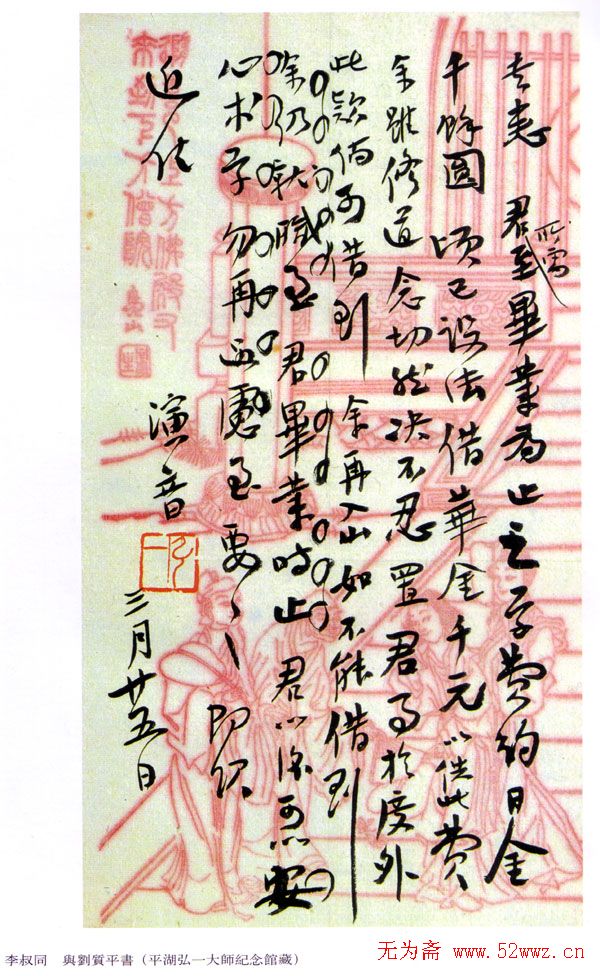 書悉 君所需至畢業為止之學費約日金
千餘圓 頃已設法借華金千元以供此費
余雖修道念切然決不忍置君事於度外
此款倘可借到 余再入山如不能借到
余仍就職至君畢業時止 君以後可以安
心求學勿再過慮至要〻 即頌
近佳
演音
三月廿五日
李叔同 與劉質平書（平湖弘一大師紀念館藏）
无为斋 www.52wwz.cn